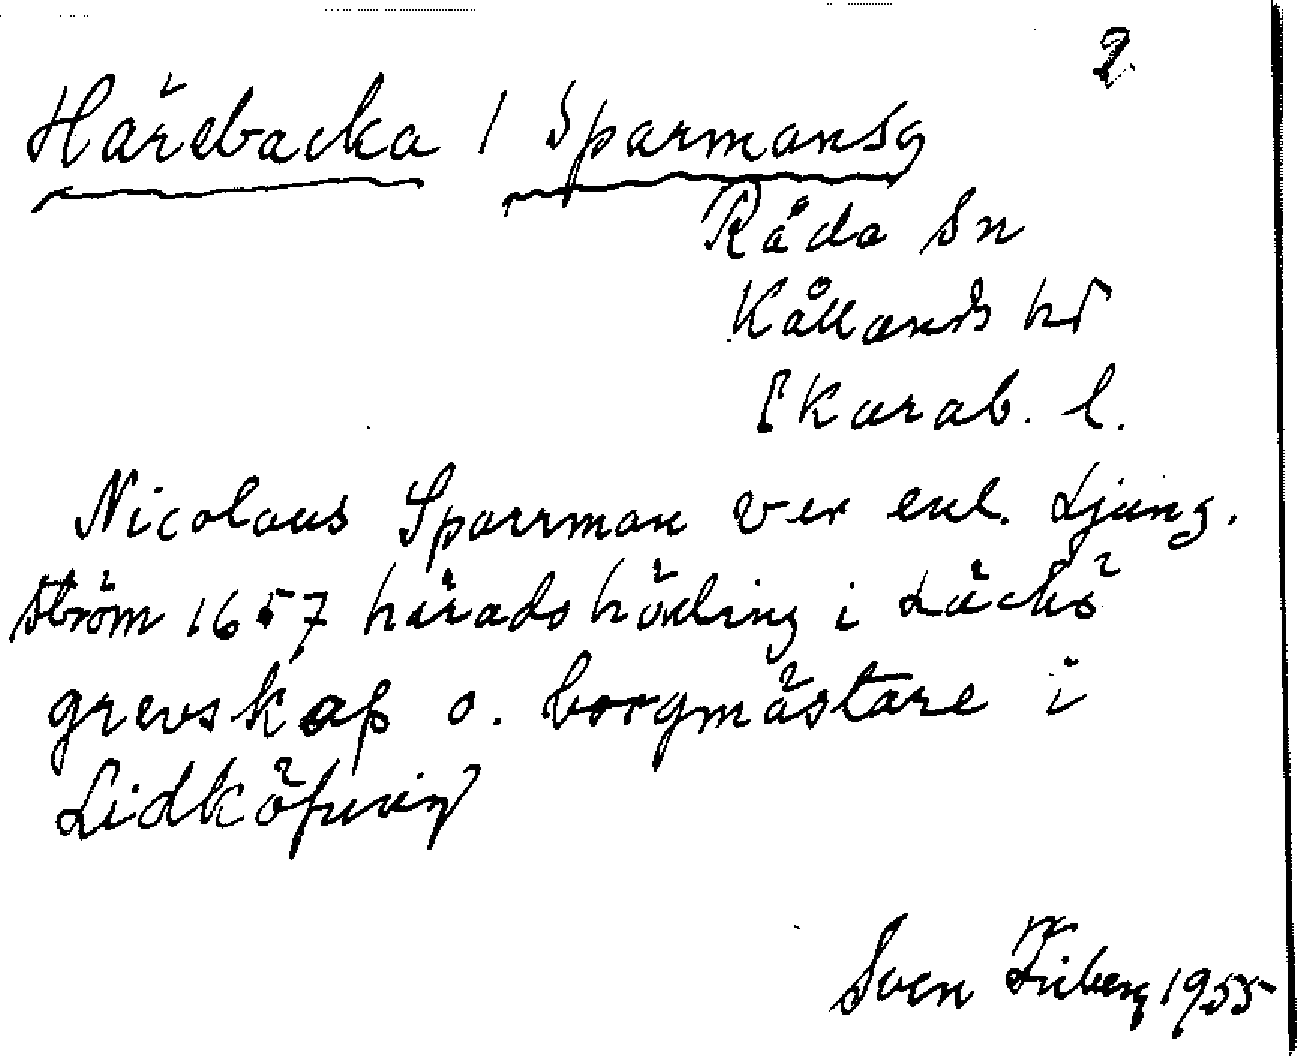 2.
Härebacka / Sparmansg
Råda Sn
Kållands hd
Skarab. l.
Nicolaus Sparrman var enl. Ljung.
ström 1657 häradshövding i Läckö
grevskap o. borgmästare i
Lidköping
Sven Friberg 1955